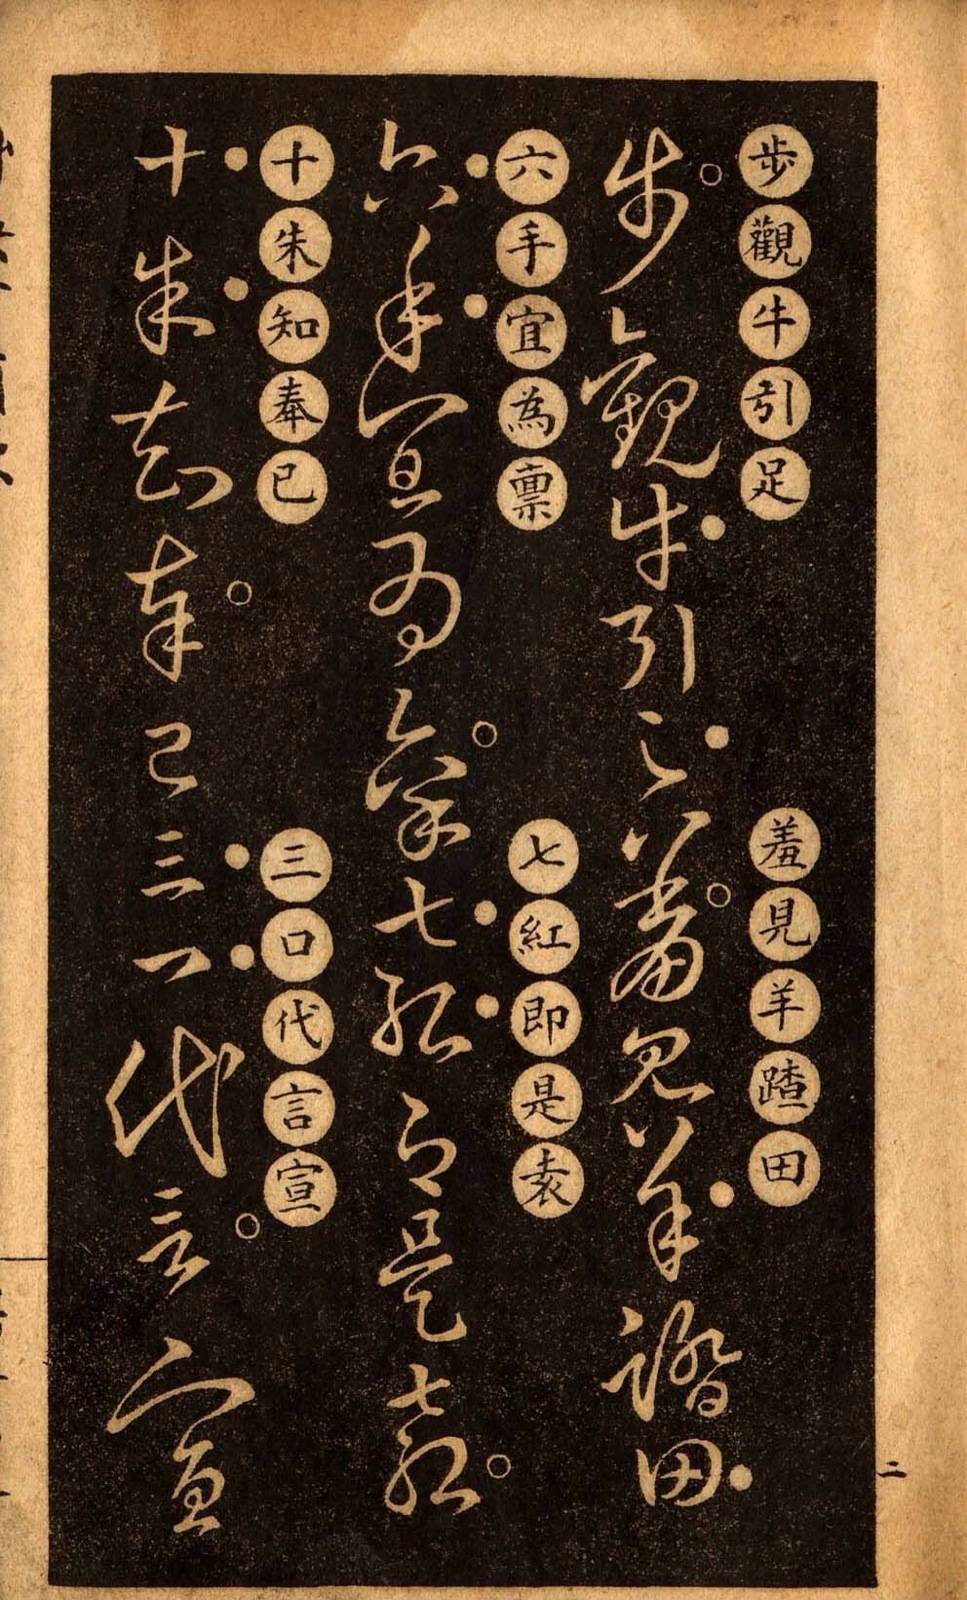 步觀牛引足
羞見羊蹅田
步觀牛引足羞見羊蹅田
六手宜為禀
七紅即是袁
六手宜為禀七紅即是袁
十朱知奉已
三口代言宣
十朱知奉已三口代言宣
二